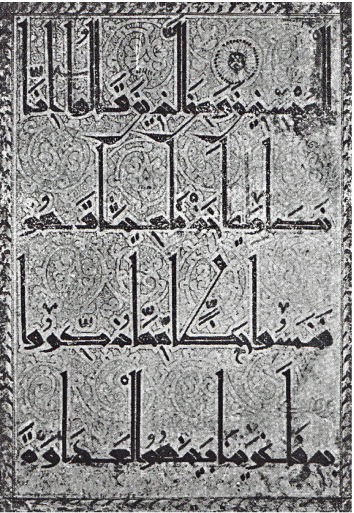 المحسنين ومن الذين قالوا إنا
نصرى أخذنا ميثاقهم
فنسوا حظا مما ذكروا
به فأغرينا بينهم العداوة